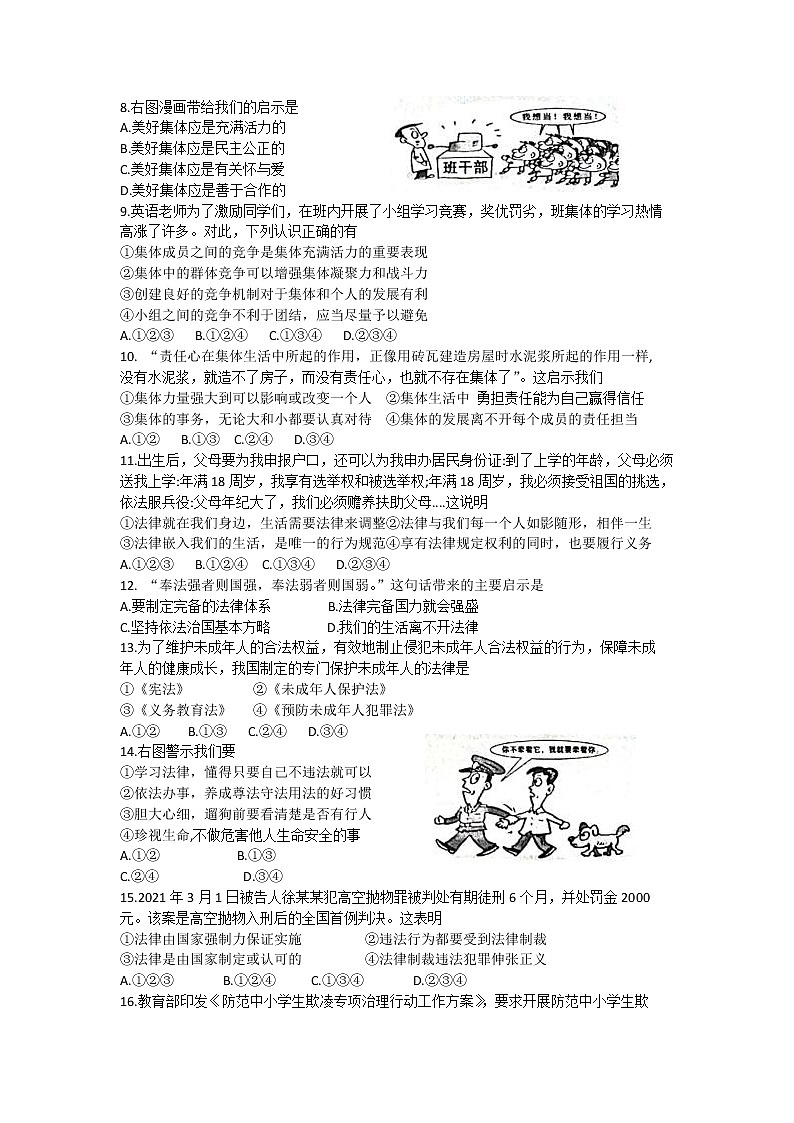 8.右图漫画带给我们的启示是
A.美好集体应是充满活力的
B.美好集体应是民主公正的
C.美好集体应是有关怀与爱
D.美好集体应是善于合作的
我想当！我想当！
班干部
9.英语老师为了激励同学们，在班内开展了小组学习竞赛，奖优罚劣，班集体的学习热情
高涨了许多。对此，下列认识正确的有
①集体成员之间的竞争是集体充满活力的重要表现
②集体中的群体竞争可以增强集体凝聚力和战斗力
③创建良好的竞争机制对于集体和个人的发展有利
④小组之间的竞争不利于团结，应当尽量予以避免
A.①②③ B.①②④ C.①③④ D.②③④
10. “责任心在集体生活中所起的作用，正像用砖瓦建造房屋时水泥浆所起的作用一样,
没有水泥浆，就造不了房子，而没有责任心，也就不存在集体了”。这启示我们
①集体力量强大到可以影响或改变一个人 ②集体生活中 勇担责任能为自己赢得信任
③集体的事务，无论大和小都要认真对待 ④集体的发展离不开每个成员的责任担当
A.①② B.①③ C.②④ D.③④
11.出生后，父母要为我申报户口，还可以为我申办居民身份证:到了上学的年龄，父母必须
送我上学:年满 18 周岁，我享有选举权和被选举权;年满 18 周岁，我必须接受祖国的挑选，
依法服兵役:父母年纪大了，我们必须赡养扶助父母....这说明
①法律就在我们身边，生活需要法律来调整②法律与我们每一个人如影随形，相伴一生
③法律嵌入我们的生活，是唯一的行为规范④享有法律规定权利的同时，也要履行义务
A.①②③ B.①②④ C.①③④ D.②③④
12. “奉法强者则国强，奉法弱者则国弱。”这句话带来的主要启示是
A.要制定完备的法律体系 B.法律完备国力就会强盛
C.坚持依法治国基本方略 D.我们的生活离不开法律
13.为了维护未成年人的合法权益，有效地制止侵犯未成年人合法权益的行为，保障未成
年人的健康成长，我国制定的专门保护未成年人的法律是
①《宪法》 ②《未成年人保护法》
③《义务教育法》 ④《预防未成年人犯罪法》
A.①② B.①③ C.②④ D.③④
14.右图警示我们要
①学习法律，懂得只要自己不违法就可以
②依法办事，养成尊法守法用法的好习惯
③胆大心细，遛狗前要看清楚是否有行人
④珍视生命,不做危害他人生命安全的事
A.①② B.①③
C.②④ D.③④
你不牵着它，我就要牵着你.
15.2021 年 3 月 1 日被告人徐某某犯高空抛物罪被判处有期徒刑 6 个月，并处罚金 2000
元。该案是高空抛物入刑后的全国首例判决。这表明
①法律由国家强制力保证实施 ②违法行为都要受到法律制裁
③法律是由国家制定或认可的 ④法律制裁违法犯罪伸张正义
A.①②③ B.①②④ C.①③④ D.②③④
16.教育部印发《防范中小学生欺凌专项治理行动工作方案》，要求开展防范中小学生欺